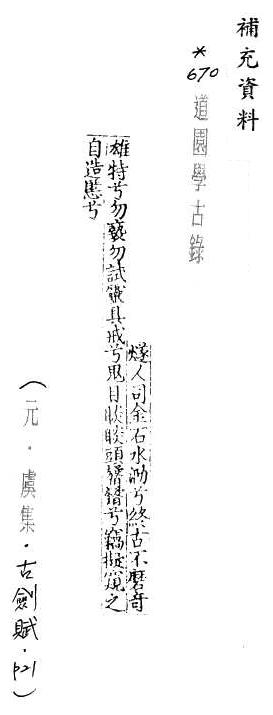 補充資料
*670 道園學古錄
燧人司金石水泐兮終古不磨奇
雄特兮勿褻勿試具戒兮鬼目睒睒頭兮竊擬窺之
自造愆兮
(元·虞集·古劍賦·p21)